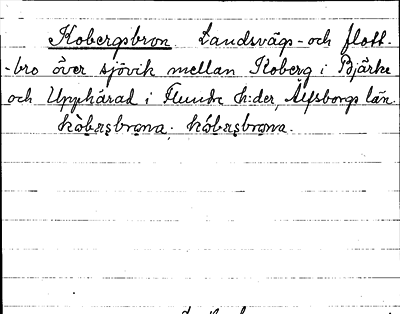 Kobergsbron Landsvägs- och flott-
-bro över sjövik mellan Koberg i Bjärke
och Upphärad i Flundre h:der, Älfsborgs län.